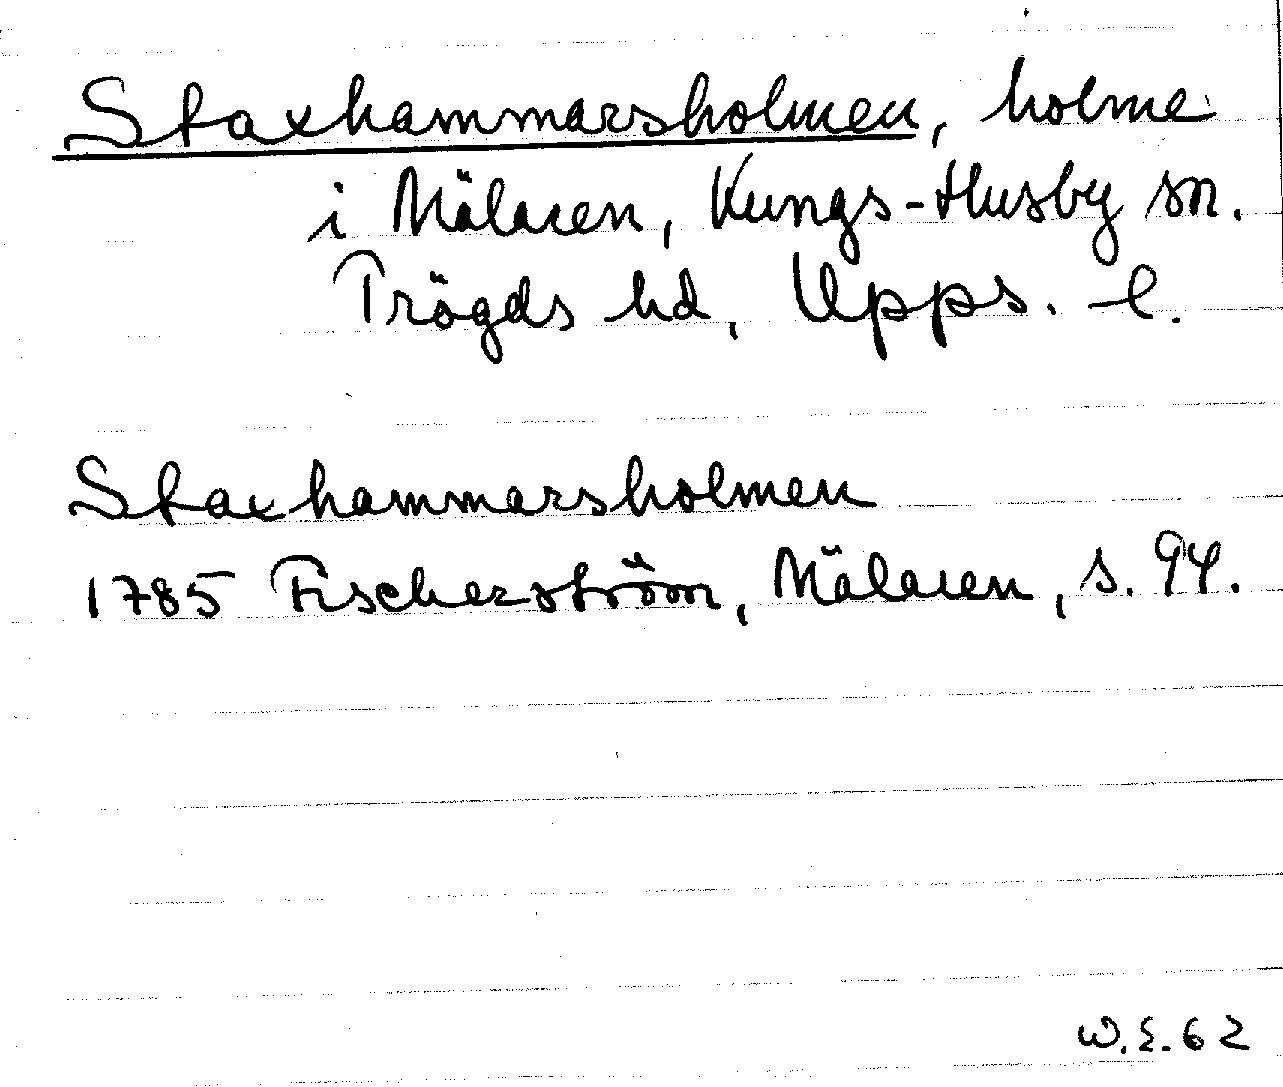 Staxhammarsholmen, holme
i Mälaren, Kungs-Husby sn.
Trögds hd, Upps. l.
Staxhammarsholmen
1785 Fischerström, Mälaren, s. 94.
W.E. 62